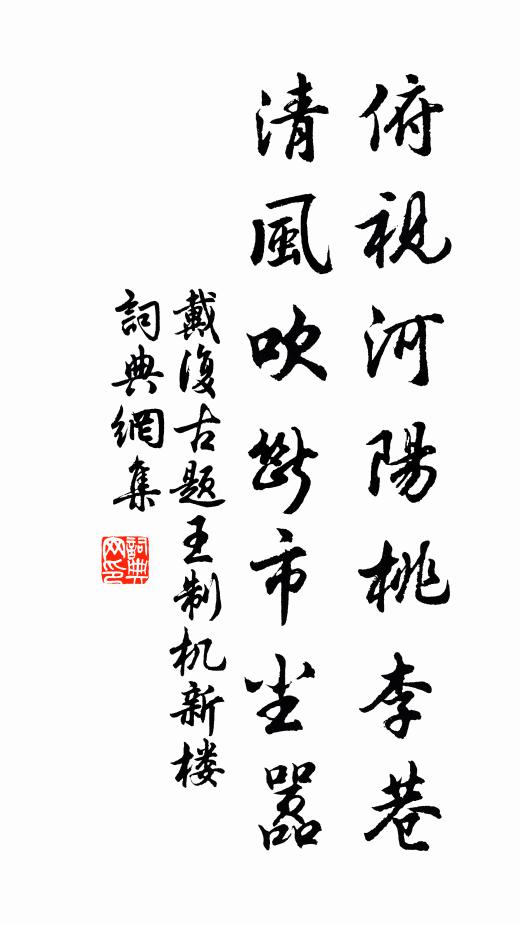 俯視河陽桃李巷
清風吹斷市尘囂
戴復古题王制机新楼
詞典網集
詞典
网印